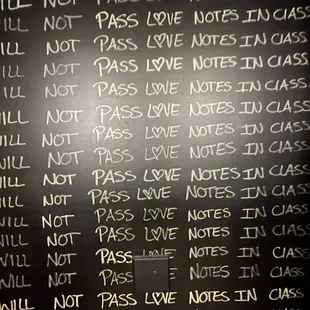 ILL NOT PASS LOVE NOTES IN CLASS
ILL NOT PASS LOVE NOTES IN CLASS
ILL NOT PASS LOVE NOTES IN CLASS
ILL NOT PASS LOVE NOTES IN CLASS
ILL NOT PASS LOVE NOTES IN CLASS
ILL NOT PASS LOVE NOTES IN CLASS
WILL NOT PASS LOVE NOTES IN CLASS
WILL NOT PASS LOVE NOTES IN CLASS
WILL NOT PASS LOVE NOTES IN CLASS
WILL NOT PASS LOVE NOTES IN CLASS
WILL NOT PASS LOVE NOTES IN CLASS
WILL NOT PASS LOVE NOTES IN CLASS
WILL NOT PASS NOTES IN CLASS
WILL NOT PASS LOVE NOTES IN CLASS